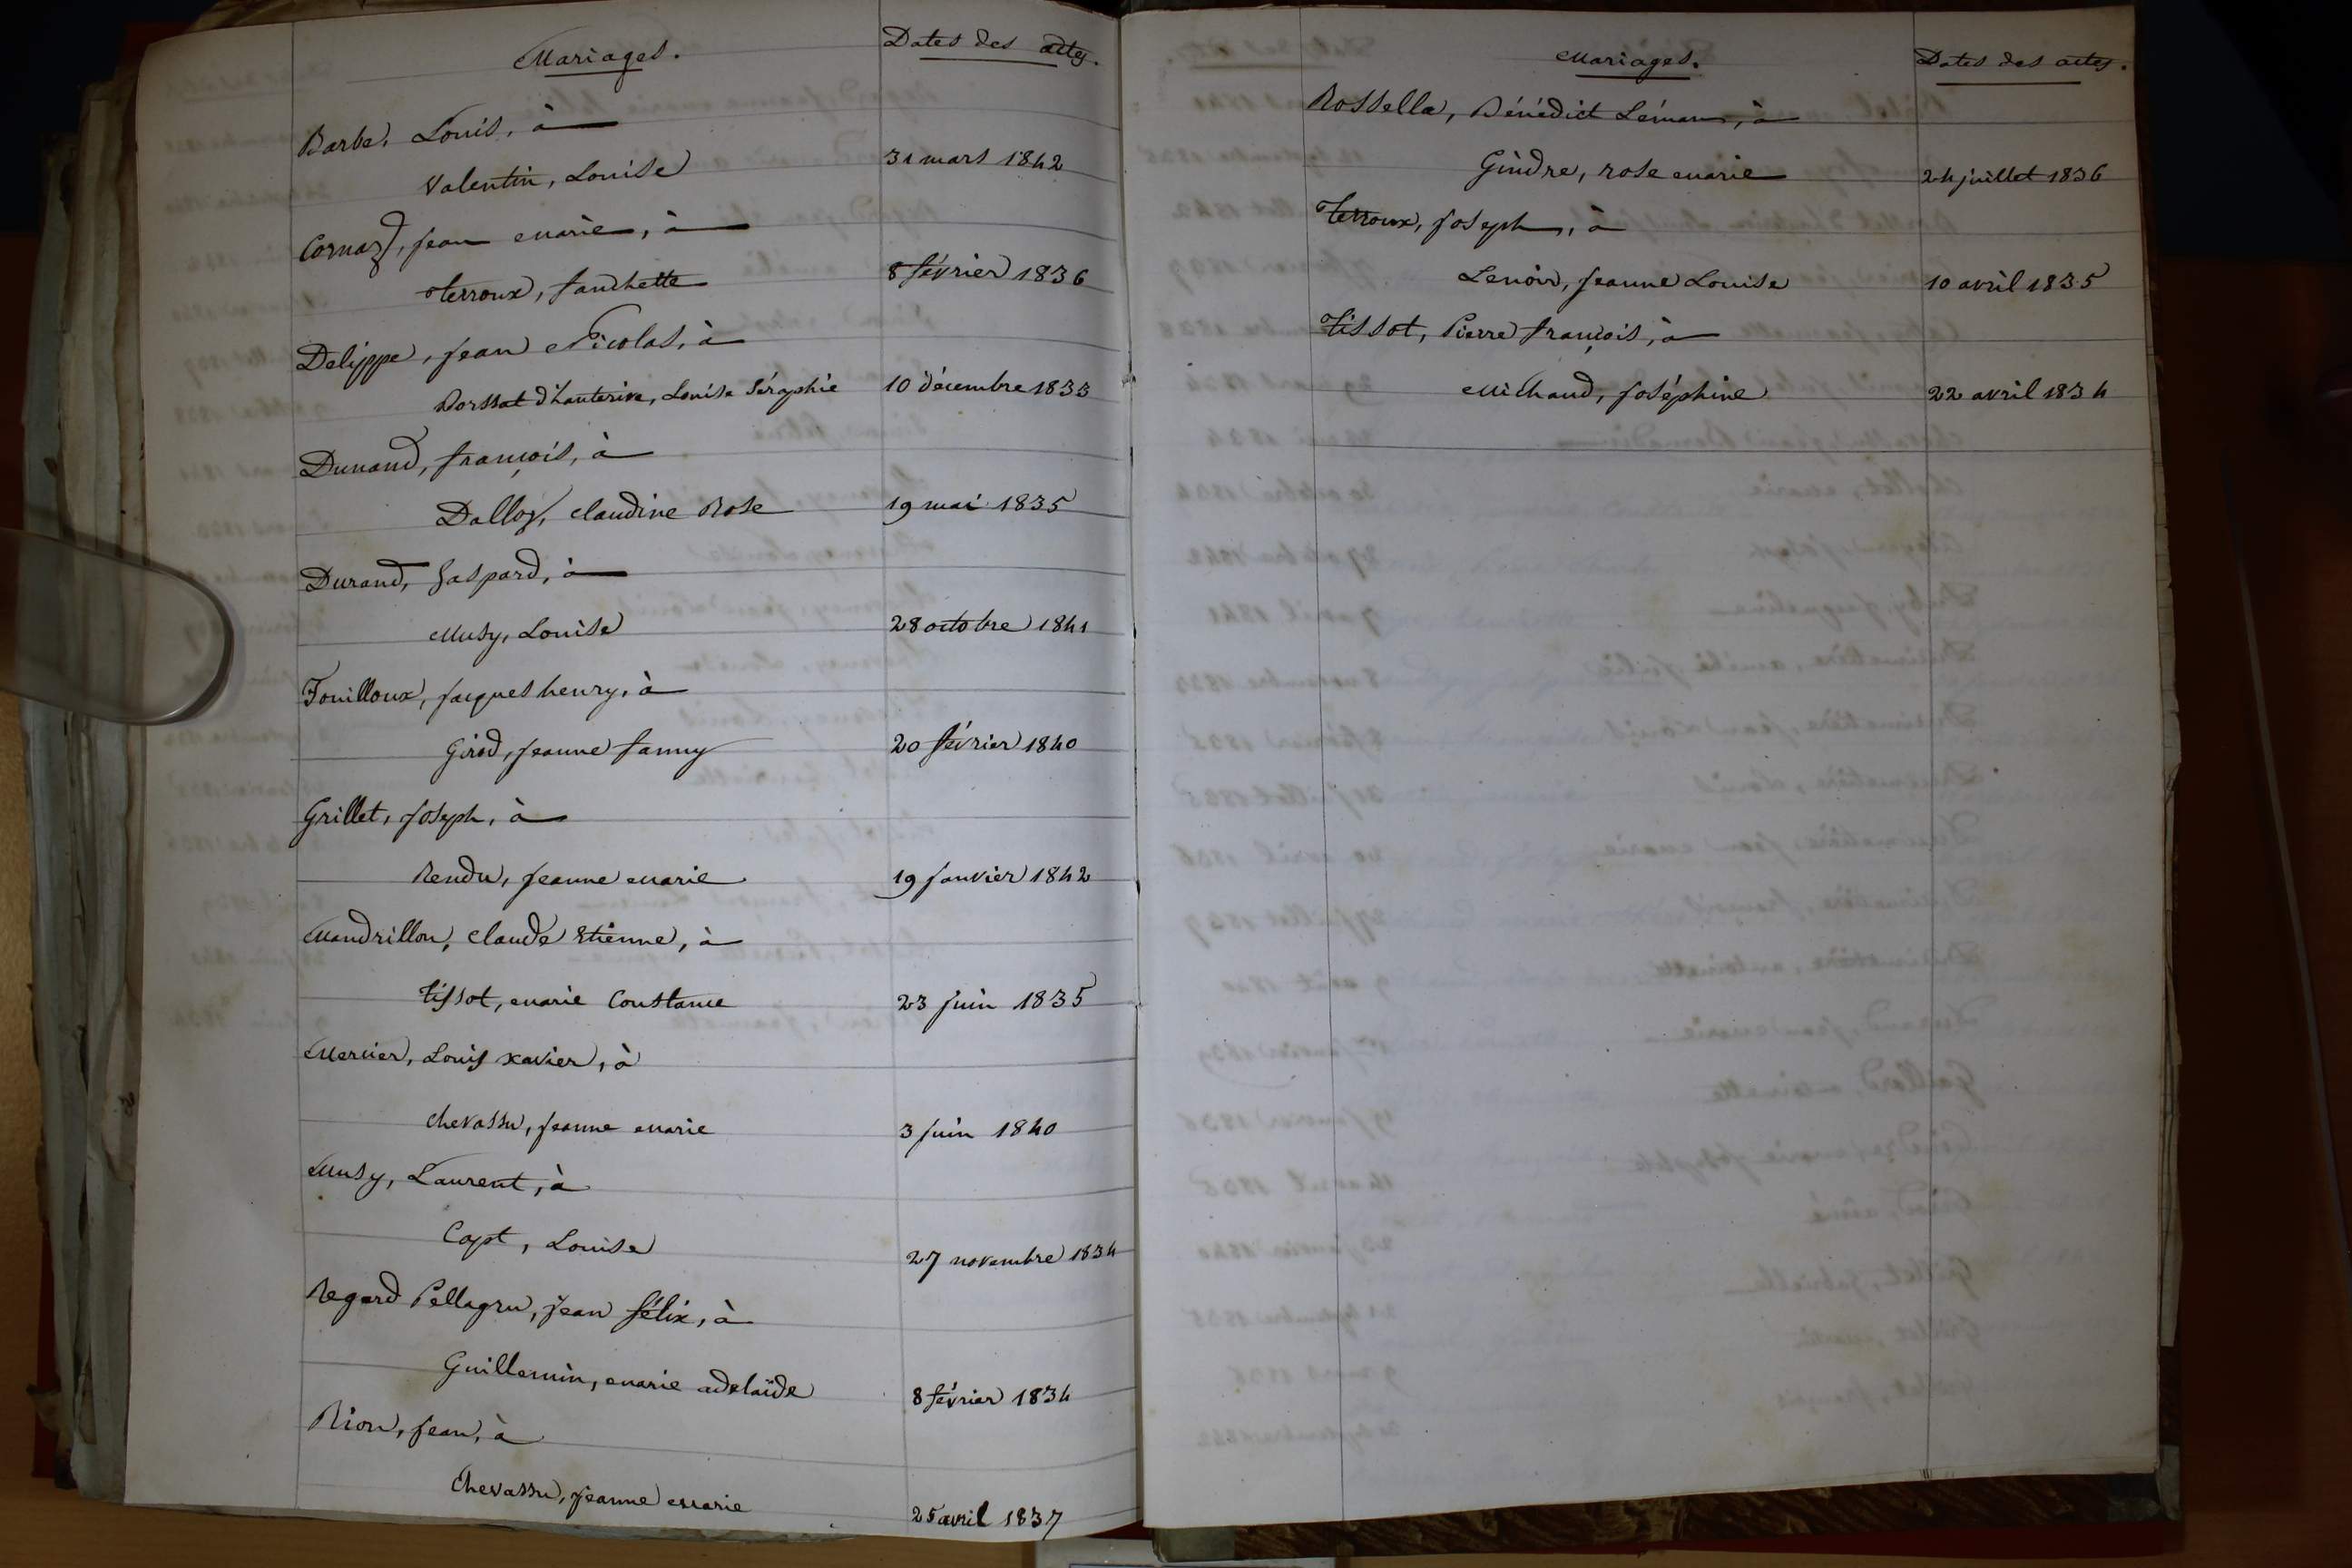 Mariages. Dates des actes.
Barbe, Louis, à
Valentin, Louise 31 mars 1842
Cornaz, jean marie, à
Terroux, fanchette 8 février 1836
Delippe, jean Nicolas, à
Dorssat d'hauterive, Louise Séraphie 10 décembre 1833
Dunand, françois, à
Dalloz, claudine Rose 19 mai 1835
Durand, Gaspard, à
Musy, Louise 28 octobre 1841
Fouilloux, jacques henry, à
Girod, jeanne fanny 20 février 1840
Grillet, joseph, à
Rendu, jeanne marie 19 janvier 1842
Mandrillon, claude Etienne, à
Tissot, marie Constance 23 juin 1835
Mercier, Louis xavier, à
Chevassu, jeanne marie 3 juin 1840
Musy, Laurent, à
Capt, Louise 27 novembre 1834
Regard Pellagru, jean félix, à
Guillemin, marie adelaïde 8 février 1834
Rion, jean, à
Chevassu, jeanne marie 25 avril 1837
Mariages. Dates des actes.
Rossella, Bénédict Léman, à
Gindre, rose marie 24 juillet 1836
Terroux, joseph, à
Lenoir, jeanne Louise 10 avril 1835
Tissot, Pierre françois, à
Michaud, joséphine 22 avril 1834